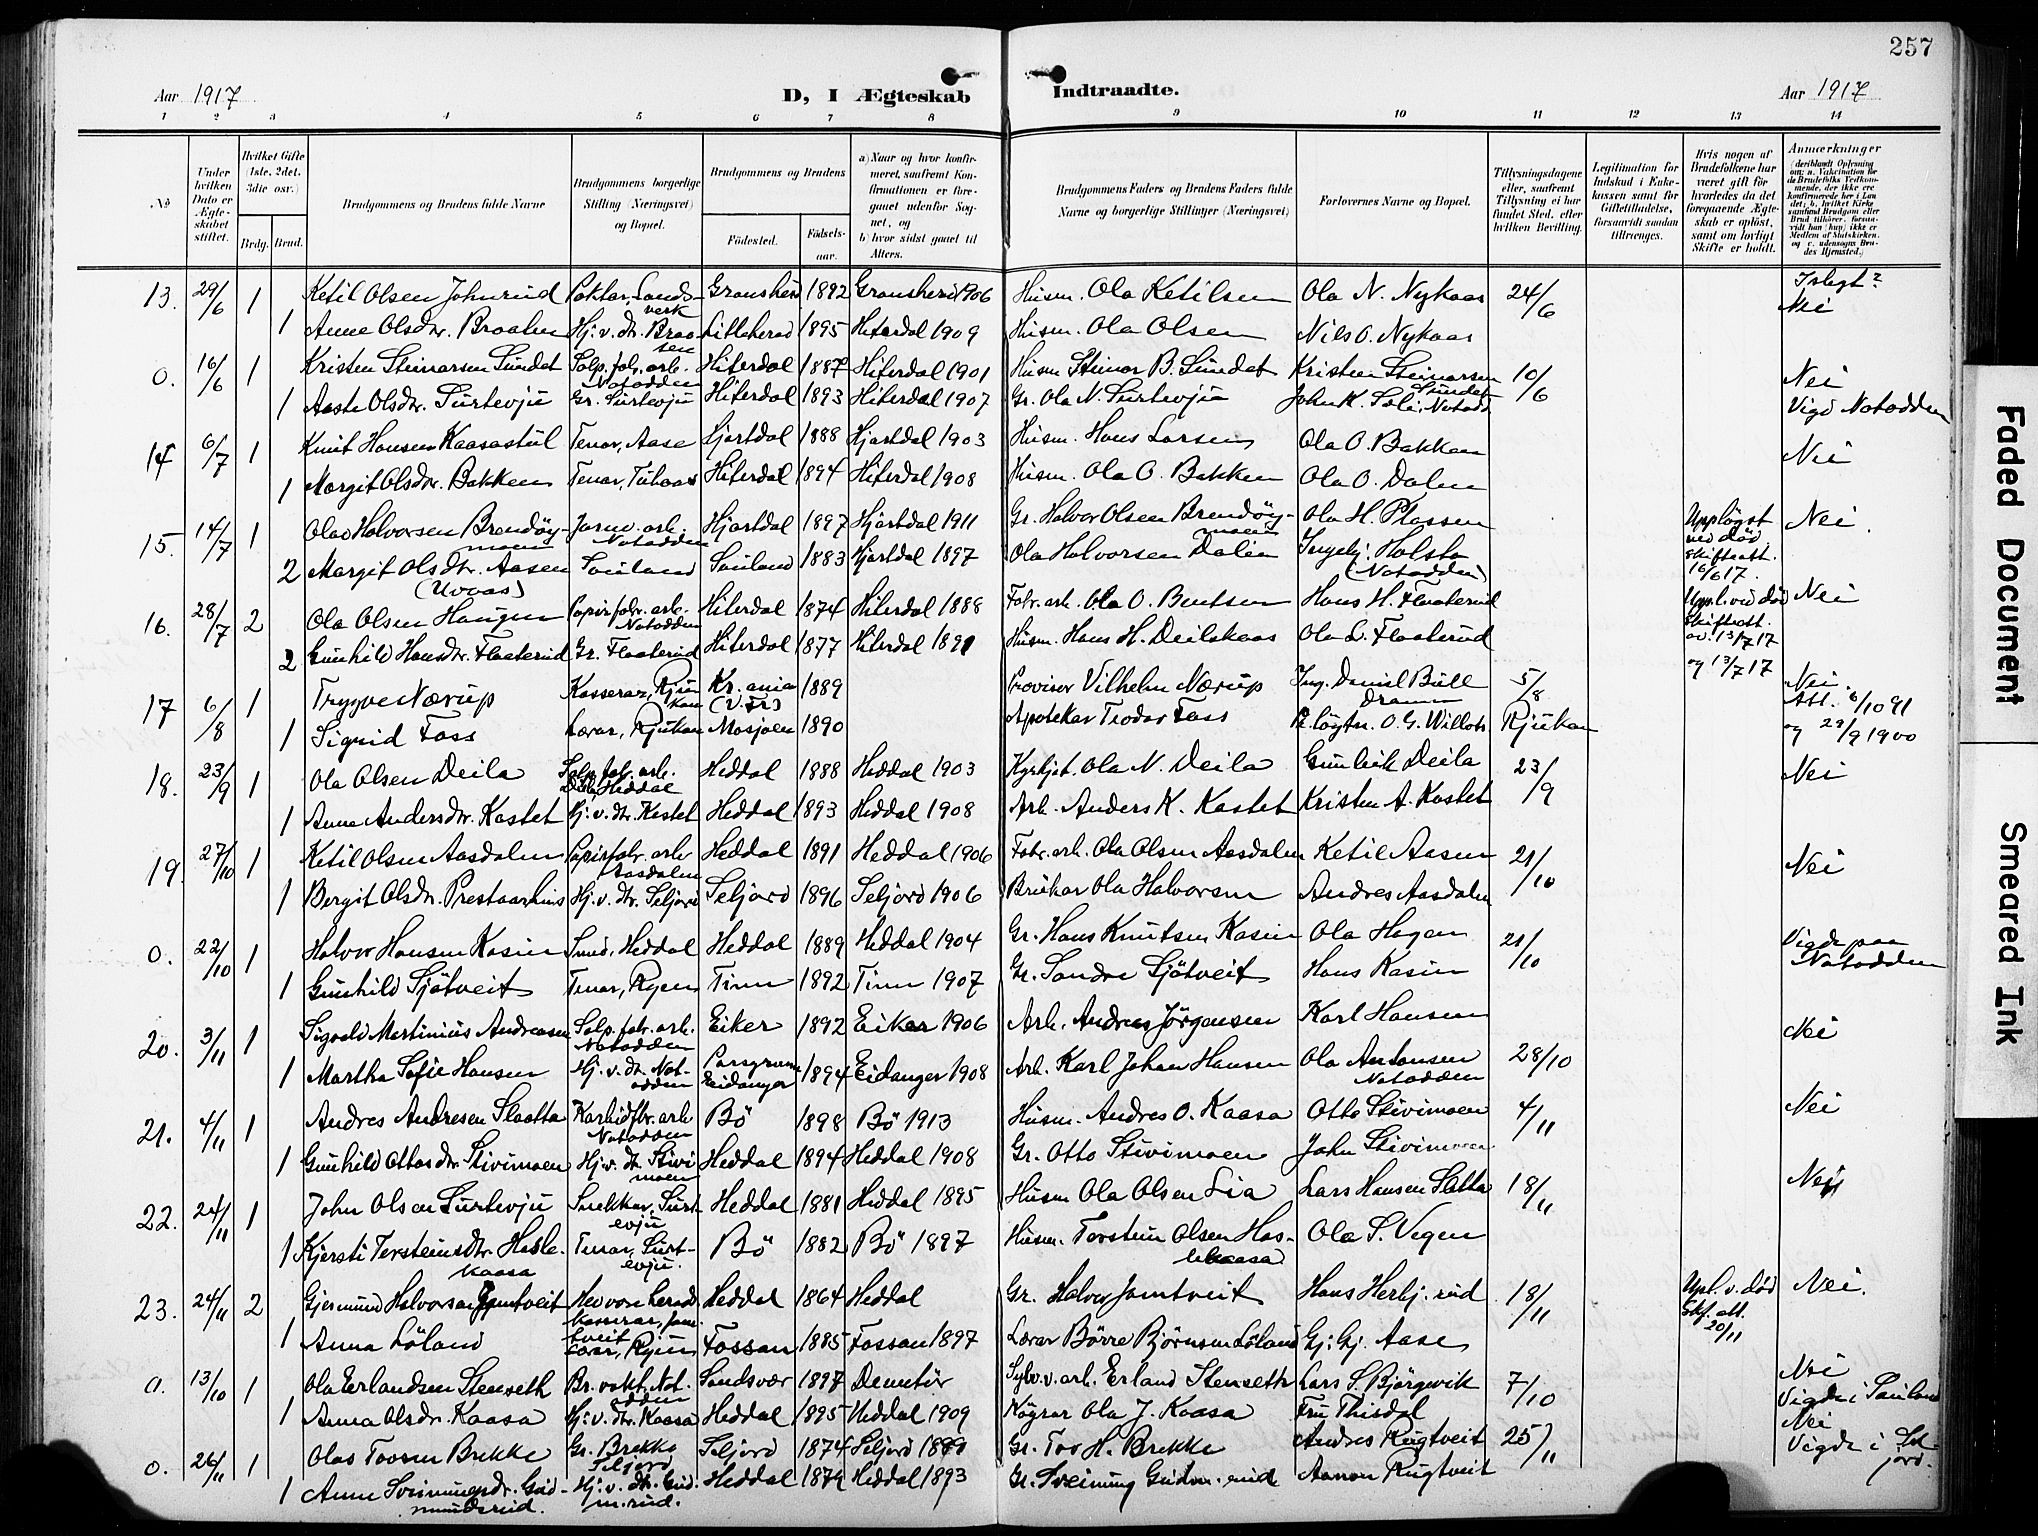 257
Aar 1917
D, I Ægteskab Indtraadte.
Aar 1917
1 2 3 4 5 6 7 8 9 10 11 12 13 14
No
Under hvilken Dato er Ægteskabet stiftet.
Hvilket Gifte (1ste, 2det, 3die osv.)
Brdg. Brud.
Brudgommens og Brudens fulde Navne
Brudgommens borgerlige Stilling (Næringsvei) og Bopæl.
Brudgommens og Brudens
Födested. Födselsaar.
a) Naar og hvor konfirmeret, saafremt Konfirmationen er foregaaet udenfor Sognet, og
b) hvor sidst gaaet til Alters.
Brudgommens Faders og Brudens Faders fulde Navne og borgerlige Stillinger (Næringsvei)
Forlovernes Navne og Bopæl.
Tillysningsdagene eller, saafremt Tillysning ei har fundet Sted, efter hvilken Bevilling.
Legitimation for Indskud i Enkekassen samt for Giftetilladelse, forsaavidt saadan tiltrænges.
Hvis nogen af Brudefolkene har været gift för hvorledes da det foregaaende Ægteskab er oplöst, samt om lovligt Skifte er holdt.
Anmærkninger
13. 29/6 1 Ketil Olsen Johnrud Gransherd 1892 Gransherd 1906 Husm. Ola Ketilsen Ola N. Nykaas 24/6 Islegt? Nei
1 Anne Olsdtr. Braaten Hj. v. dr. Braasen Lilleherad 1895 Hiterdal 1909 Husm. Ola Olsen Nils O. Nykaas
0. 16/6 1 Kristen Steinarsen Sundet Salp. fabr. arb. Notodden Hiterdal 1887 Hiterdal 1901 Husm Steinar B. Sundet Kristen Steinarsen Sundet 10/6 Nei
1 Aaste Olsdtr. Surtevju Gr. Surtevju Hiterdal 1893 Hiterdal 1907 Gr. Ola N. Surtevju John K. Soli, Notodd Vigd Notodden
14 6/7 1 Knut Hansen Kaasastul Tenar, Aase Hjartdal 1888 Hjartdal 1903 Husm. Hans Larsen Ola O. Bakken Nei
1 Margit Olsdtr. Bakken Tenar, Tuhaas Hiterdal 1894 Hiterdal 1908 Husm. Ola O. Bakken Ola O. Dalen
15. 14/7 1 Olav Halvorsen Brendöymoen Jarnv. arb. Notodden Hjartdal 1897 Hjartdal 1911 Gr. Halvor Olsen Brendöymoen Ola H. Plassen Upplöyst ved död, skifteatt. 16/6 17. Nei
2 Margit Olsdtr. Aasen (Uvaas) Sauland Sauland 1883 Hjartdal 1897 Ola Halvorsen Dalen Ingebj. Holsta (Notodden)
16. 28/7 2 Ola Olsen Haugen Papirfabr. arb. Notodden Hiterdal 1874 Hiterdal 1888 Fabr. arb. Ola O. Bentsen Hans H. Flaaterud Uppl. ved död skifteatt. av. 13/7 17 og 13/7 17 Nei
2 Gunhild Hansdtr. Flaaterud Gr. Flaaterud Hiterdal 1877 Hiterdal 1891 Husm. Hans H. Deilskaas Ola L. Flaaterud
17 6/8 1 Trygve Nærup Kasserar, Rjukan Kr. ania (V. Fr) 1889 Provisor Vilhelm Nærup Ing. Daniel Bull Dramn 5/8 Nei.
1 Sigrid Foss Lærar, Rjukan Mosjøen 1890 Apotekar Teodor Foss O. G. Willoch Rjukan Att. 6/10 91 og 29/9 1900
18. 23/9 1 Ola Olsen Deila Salp. fabr. arb. Deila Heddal Heddal 1888 Heddal 1903 Kyrkjet. Ola N. Deila Gunleik Deila 23/9 Nei
1 Anne Andersdtr. Kastet Hj. v. dr. Kastet Heddal 1893 Heddal 1908 Arb. Anders K. Kastet Kristen A. Kastet
19. 27/10 1 Ketil Olsen Aasdalen Papirfabr. arb Aasdalen Heddal 1891 Heddal 1906 Fabr. arb. Ola Olsen Aasdalen Ketil Aasen 21/10 Nei
1 Bergit Olsdtr. Prestaarhus Hj. v. dr. Seljord Seljord 1896 Seljord 1906 Brukar Ola Halvorsen Andres Aasdalen
0. 22/10 1 Halvor Hansen Kasin Smed, Heddal Heddal 1889 Heddal 1904 Gr. Hans Knutsen Kasin Ola Hagen 21/10 Vigde paa Notodden
1 Gunhild Sjötveit Tenar, Ryen Tinn 1892 Tinn 1907 Gr. Sondre Sjötveit Hans Kasin
20. 3/11 1 Sigvald Martinius Andreasen Salp. fabr. arb. Notodden Eiker 1892 Eiker 1906 Arb. Andreas Jörgensen Karl Hansen Nei
1 Martha Sofie Hansen Hj. v. dr. Notodden Porsgrunn Eidanger 1894 Eidanger 1908 Arb. Karl Johan Hansen Ola Antonsen Notodden 28/10
21. 4/11 1 Andres Andresen Slaatta Karbidfbr. arb Notodden Bö 1898 Bö 1913 Husm. Andres O. Kaasa Otto Stivimoen 4/11 Nei
1 Gunhild Ottosdtr. Stivimoen Hj. v. dr. Stivimoen Heddal 1894 Heddal 1908 Gr. Otto Stivimoen John Stivimoen
22. 24/11 1 John Olsen Surtevju Snekkar, Surtevju Heddal 1881 Heddal 1895 Husm Ola Olsen Lia Lars Hansen Slatta 18/11 Nei
1 Kjersti Torsteinsdtr. Haslekaasa Tenar, Surtevju. Bö 1882 Bö 1897 Husm. Torstein Olsen Haslekaasa Ola S. Vegen
23. 24/11 2 Gjermund Halvorsen Jamtveit Heradskasserar, Jamtveit Heddal 1864 Heddal Gr. Halvor Jamtveit Hans Herbj.rud 18/11 Upl. v. död Skf. att. 20/11 Nei.
1 Anna Löland Lærar, Ryen Fossan 1885 Fossan 1897 Lærar Börre Björnsen Löland Gj. Gj. Aase
0. 13/10 1 Ola Erlandsen Stenseth Br. vakt, Notodden Sandsvær 1897 Sylv. v. arb. Erland Stenseth Lars S. Björgvik 7/10 Nei
1 Anna Olsdtr. Kaasa Hj. v. dr. Kaasa Heddal 1895 Heddal 1909 Ola J. Kaasa Fru Thisdal Vigde i Sauland
0. 26/11 1 Olav Tovsen Brekke Gr. Brekke Seljord Seljord 1874 Seljord Gr. Tov H. Brekke Andres Rugtveit 25/11 Nei
1 Anne Sveinungsdr. Gudmundsrud. Hj. v. dr. Gudm.rud. Heddal 1879 Heddal 1893 Gr. Sveinung Gudm.rud Aamon Rugtveit Vigde i Seljord.
Faded Document
Smeared Ink